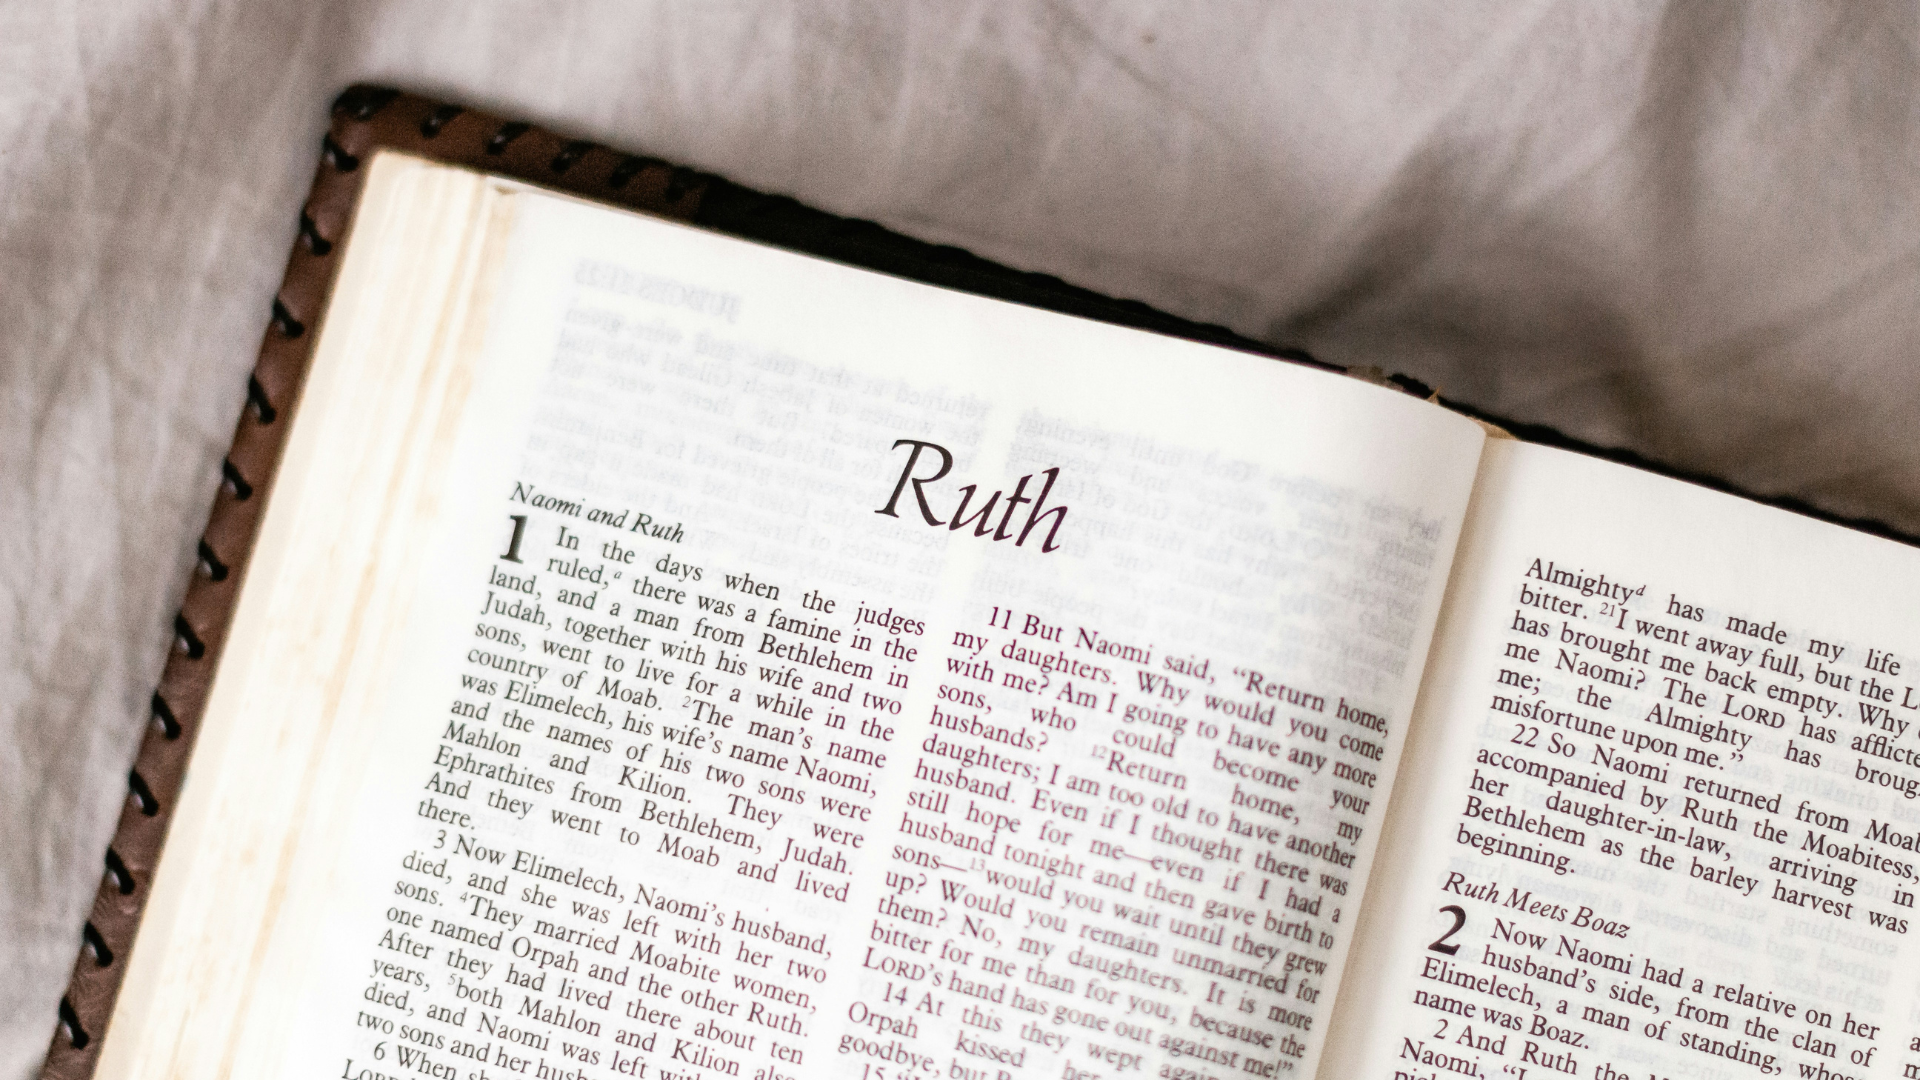 Ruth
Naomi and Ruth
1 In the days when the judges
ruled,a there was a famine in the
land, and a man from Bethlehem in
Judah, together with his wife and two
sons, went to live for a while in the
country of Moab. 2The man's name
was Elimelech, his wife's name Naomi,
and the names of his two sons were
Mahlon and Kilion. They were
Ephrathites from Bethlehem, Judah.
And they went to Moab and lived
there.
3 Now Elimelech, Naomi's husband,
died, and she was left with her two
sons. 4They married Moabite women,
one named Orpah and the other Ruth.
After they had lived there about ten
years, 5both Mahlon and Kilion also
died, and Naomi was left
two sons and her
6 When
LORD
11 But Naomi said, "Return home,
my daughters. Why would you come
with me? Am I going to have any more
sons, who could become your
husbands? 12Return home, my
daughters; I am too old to have another
husband. Even if I thought there was
still hope for me—even if I had a
husband tonight and then gave birth to
sons—13would you wait until they grew
up? Would you remain unmarried for
them? No, my daughters. It is more
bitter for me than for you, because the
LORD's hand has gone out against me!"
14 At this they wept again
Orpah kissed her
goodbye, but
15
Almightyd has made my life
bitter. 21I went away full, but the
has brought me back empty. Why
me Naomi? The LORD has
me; the Almighty has
misfortune upon me."
22 So Naomi returned from Moab
accompanied by Ruth the Moabitess,
her daughter-in-law, arriving in
Bethlehem as the barley harvest was
beginning.
Ruth Meets Boaz
2 Now Naomi had a relative on her
husband's side, from the clan of
Elimelech, a man of standing, whose
name was Boaz.
2 And Ruth the
Naomi,